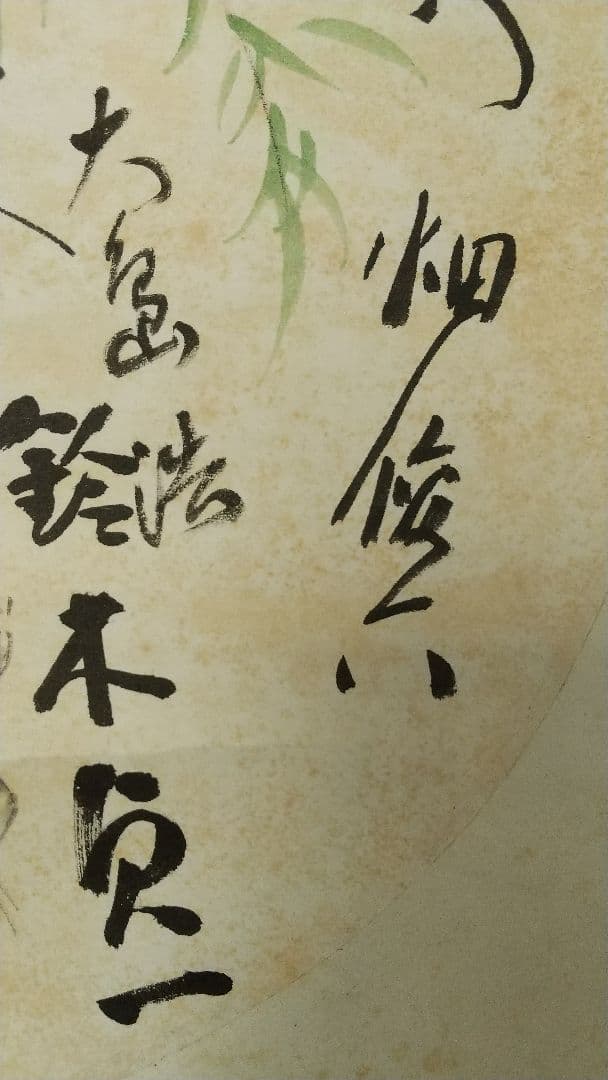 畑俊六
大島浩
鈴木貞一